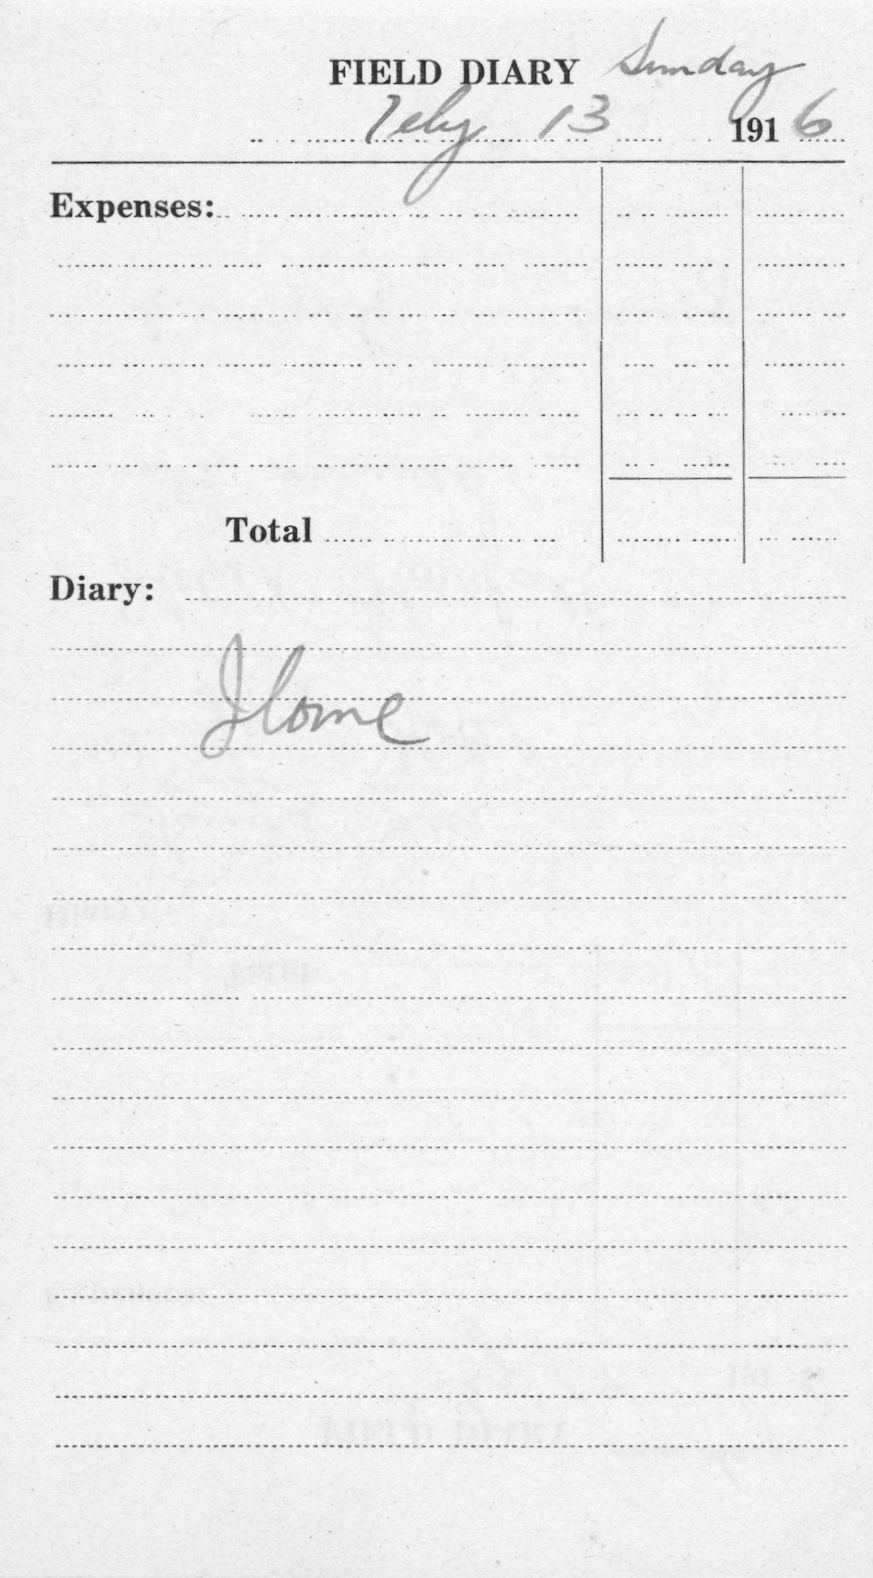 FIELD DIARY Sunday
Feby 13 1916
Expenses:
Total
Diary:
Home